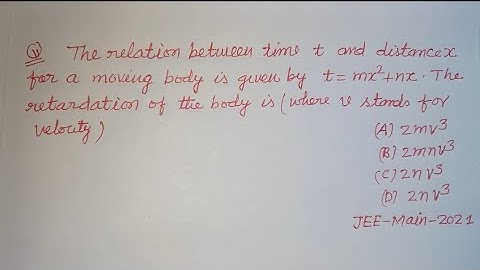 Q The relation between time t and distance x
for a moving body is given by t = mx²+nx. The
retardation of the body is (where v stands for
velocity)
(A) 2mv³
(B) 2mnv³
(C) 2nv³
(D) 2nv³
JEE-Main-2021